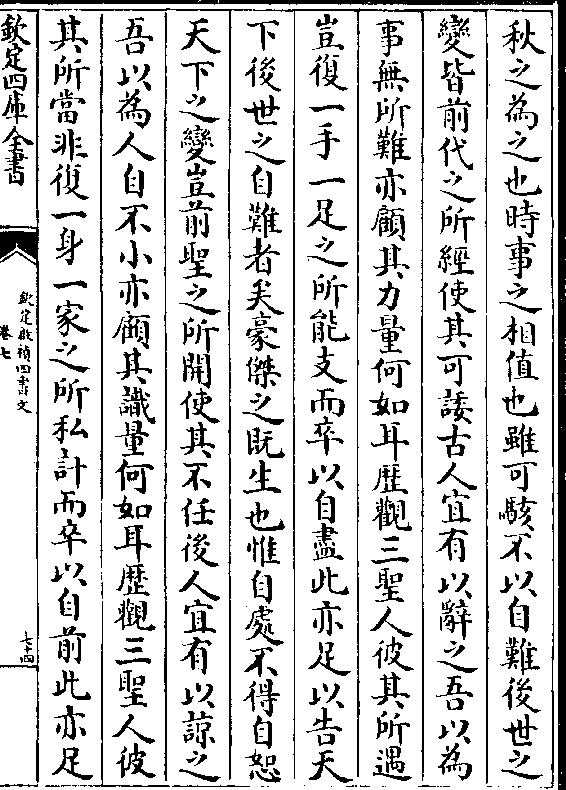 秋之為之也時事之相值也雖可駭不以自難後世之
變皆前代之所經使其可諉古人宜有以辭之吾以為
事無所難亦顧其力量何如耳歴觀三聖人彼其所遇
豈復一手一足之所能支而卒以自盡此亦足以告天
下後世之自難者矣豪傑之既生也惟自處不得自恕
天下之變豈前聖之所開使其不任後人宜有以諒之
吾以為人自不小亦顧其識量何如耳歴觀三聖人彼
其所當非復一身一家之所私計而卒以自前此亦足
欽定四庫全書
欽定啟禎四書文
卷七
七十四